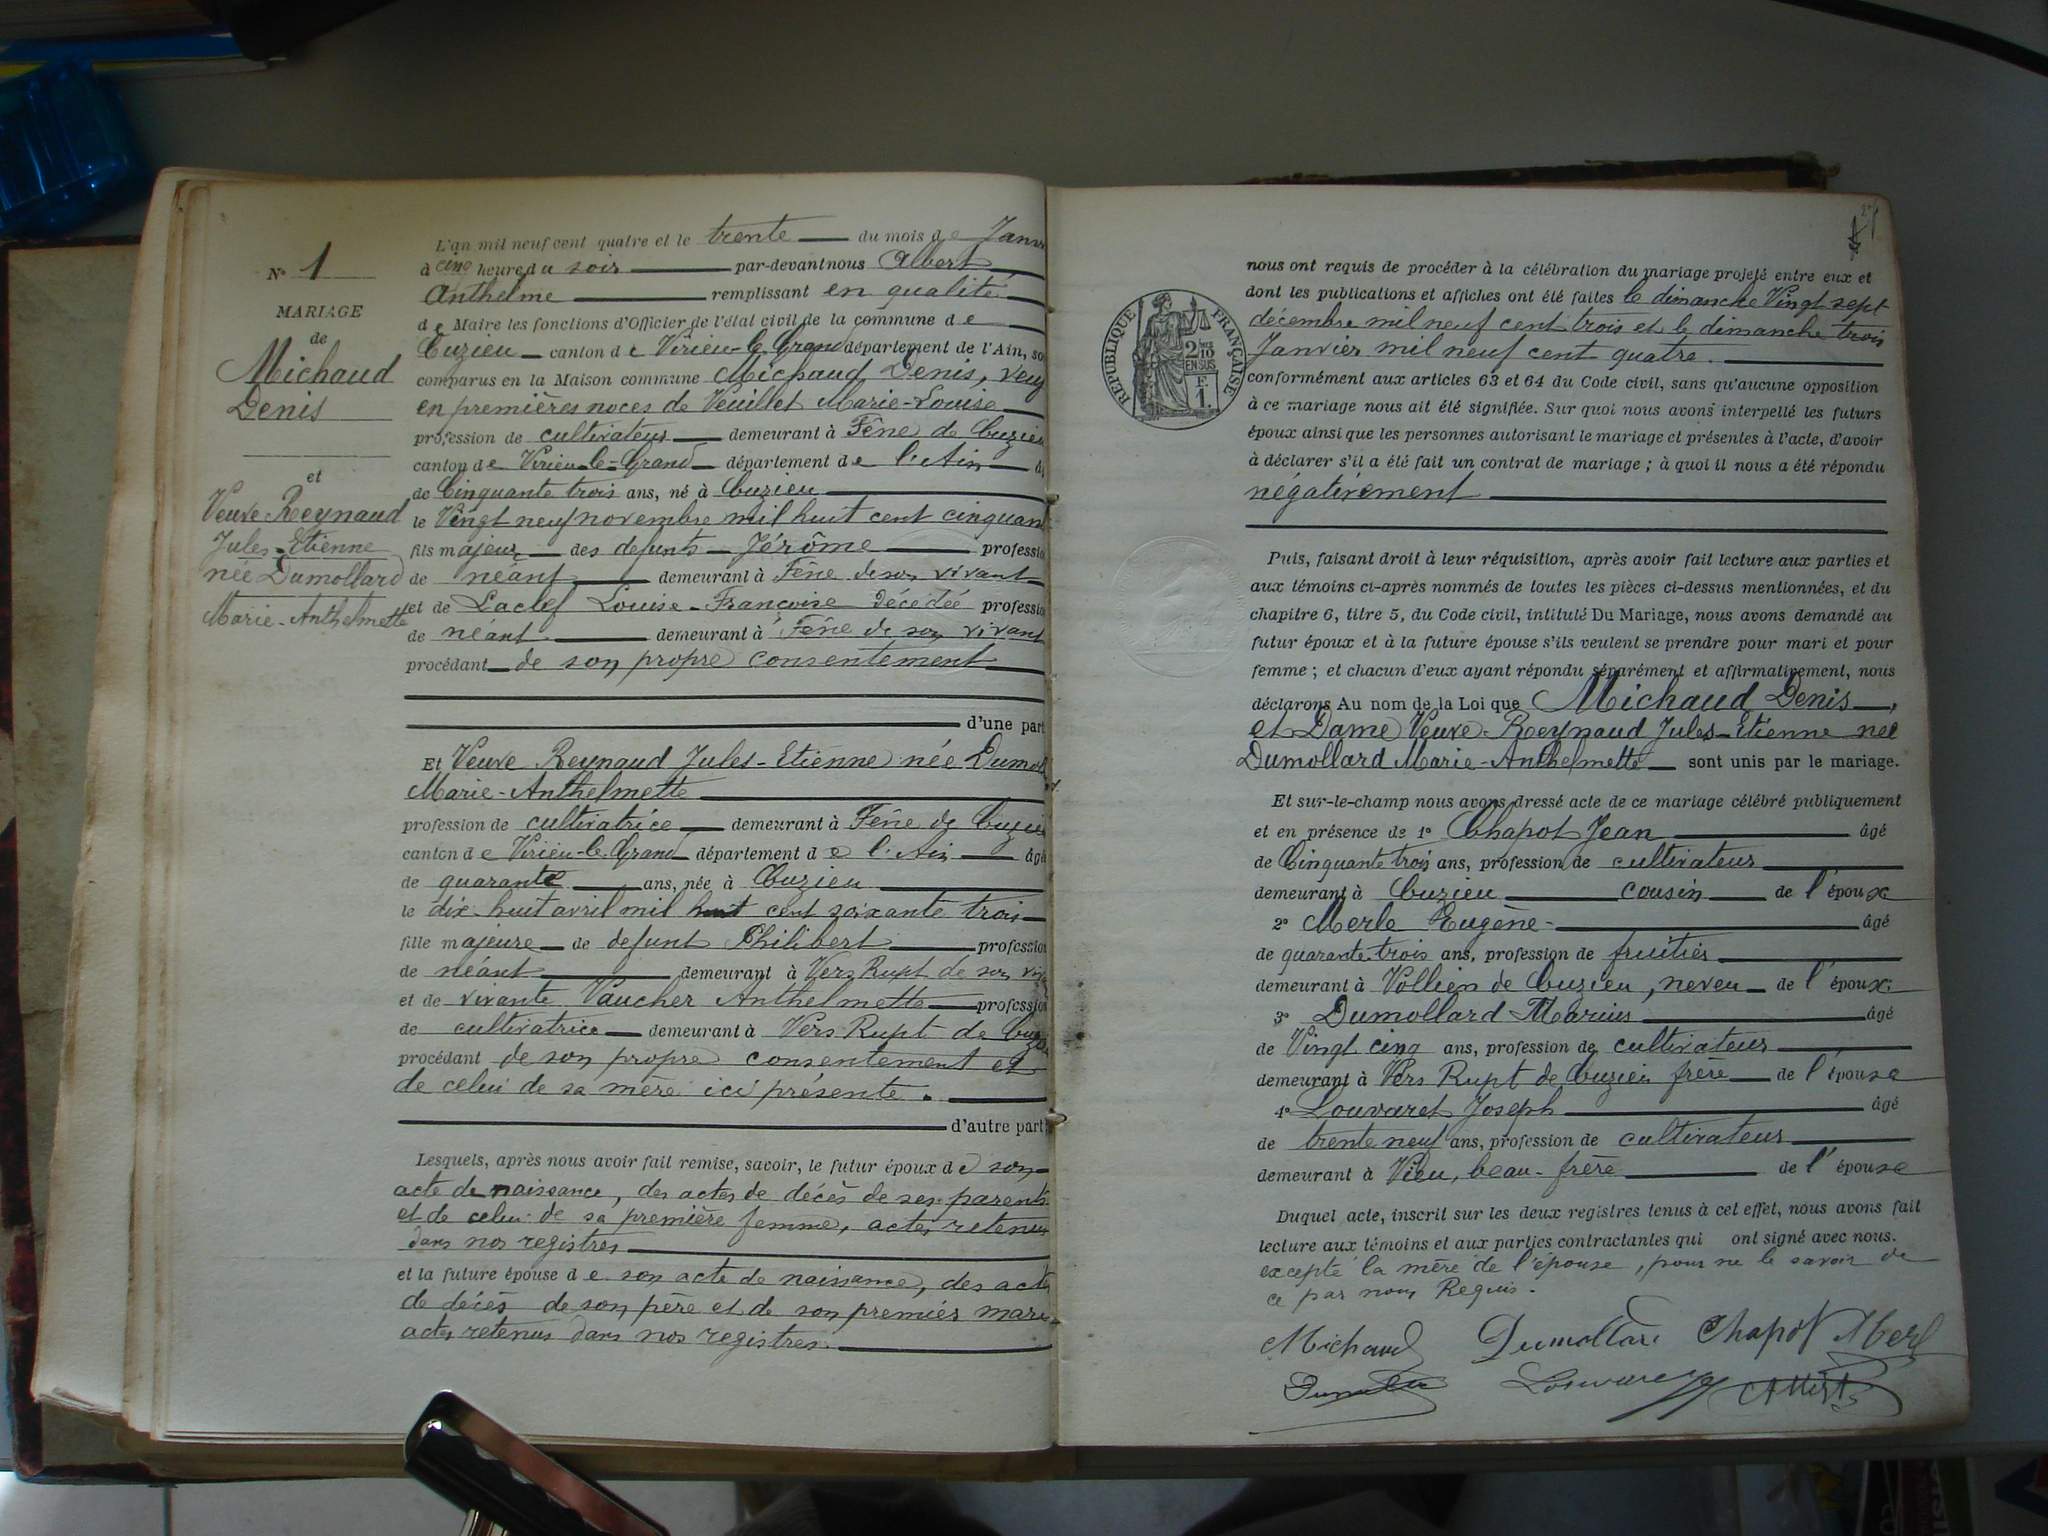 N° 1
MARIAGE
de
Michaud
Denis
et
Veuve Reynaud
Jules-Etienne
née Dumollard
Marie-Anthelmette
L'an mil neuf cent quatre et le trente du mois de Janv
à cinq heure du soir par-devant nous Albert
Anthelme remplissant en qualité
de Maire les fonctions d'Officier de l'état civil de la commune de
Cuzieu canton de Virieu-le-Grand département de l'Ain, so
comparus en la Maison commune Michaud Denis, veuf
en premières noces de Veuillet Marie-Louise
profession de cultivateur demeurant à Fène de Cuzieu
canton de Virieu-le-Grand département de l'Ain
de Cinquante trois ans, né à Cuzieu
le Vingt neuf novembre mil huit cent cinquan
fils majeur des defunts Jérôme professio
de néant demeurant à Fène de son vivant
et de Laclef Louise-Françoise décédée professio
de néant demeurant à Fène de son vivant
procédant de son propre consentement
d'une part
Et Veuve Reynaud Jules-Etienne née Dumoll
Marie-Anthelmette
profession de cultivatrice demeurant à Fène de Cuzieu
canton de Virieu-le-Grand département de l'Ain âgé
de quarante ans, née à Cuzieu
le dix-huit avril mil huit cent soixante trois
fille majeure de defunt Philibert profession
de néant demeurant à Vers Rupt de son viv
et de vivante Vaucher Anthelmette profession
de cultivatrice demeurant à Vers Rupt de Cuz
procédant de son propre consentement et
de celui de sa mère ici présente.
d'autre part
Lesquels, après nous avoir fait remise, savoir, le futur époux de son
acte de naissance, des actes de décès de ses parents
et de celui de sa première femme, actes retenus
dans nos registres
et la future épouse de son acte de naissance, des acte
de décès de son père et de son premier mari
actes retenus dans nos registres.
RÉPUBLIQUE FRANÇAISE
2/10
EN SUS
F.
1.
nous ont requis de procéder à la célébration du mariage projeté entre eux et
dont les publications et affiches ont été faites le dimanche Vingt sept
décembre mil neuf cent trois et le dimanche trois
Janvier mil neuf cent quatre.
conformément aux articles 63 et 64 du Code civil, sans qu'aucune opposition
à ce mariage nous ait été signifiée. Sur quoi nous avons interpellé les futurs
époux ainsi que les personnes autorisant le mariage et présentes à l'acte, d'avoir
à déclarer s'il a été fait un contrat de mariage ; à quoi il nous a été répondu
négativement
Puis, faisant droit à leur réquisition, après avoir fait lecture aux parties et
aux témoins ci-après nommés de toutes les pièces ci-dessus mentionnées, et du
chapitre 6, titre 5, du Code civil, intitulé Du Mariage, nous avons demandé au
futur époux et à la future épouse s'ils veulent se prendre pour mari et pour
femme ; et chacun d'eux ayant répondu séparément et affirmativement, nous
déclarons Au nom de la Loi que Michaud Denis,
et Dame Veuve Reynaud Jules-Etienne née
Dumollard Marie-Anthelmette sont unis par le mariage.
Et sur-le-champ nous avons dressé acte de ce mariage célébré publiquement
et en présence de 1° Chapot Jean âgé
de Cinquante trois ans, profession de cultivateur
demeurant à Cuzieu cousin de l'époux
2° Merle Eugène âgé
de quarante trois ans, profession de fruitier
demeurant à Vollien de Cuzieu, neveu de l'époux
3° Dumollard Marius âgé
de Vingt cinq ans, profession de cultivateur
demeurant à Vers Rupt de Cuzieu frère de l'épouse
4° Louvaret Joseph âgé
de trente neuf ans, profession de cultivateur
demeurant à Vieu, beau-frère de l'épouse
Duquel acte, inscrit sur les deux registres tenus à cet effet, nous avons fait
lecture aux témoins et aux parties contractantes qui ont signé avec nous.
excepté la mère de l'épouse, pour ne le savoir de
ce par nous Requis.
Michaud Dumollard Chapot Merl
Louvaret Albert